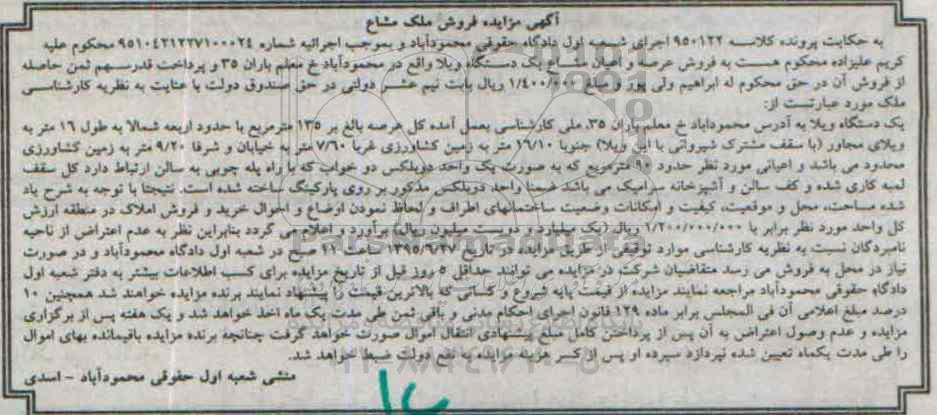 آگهی مزایده فروش ملک مشاع
به حکایت پرونده کلاسه ۹۵۰۱۲۲ اجرای شعبه اول دادگاه حقوقی محمودآباد و بموجب اجرائیه شماره ۹۵۱۰۴۲۱۲۲۷۱۰۰۰۲۴ محکوم علیه
کریم علیزاده محکوم هست به فروش عرصه و اعیان مشاع یک دستگاه ویلا واقع در محمودآباد خ معلم یاران ۳۵ و پرداخت قدرسهم ثمن حاصله
از فروش آن در حق محکوم له ابراهیم ولی پور و مبلغ ۱/۴۰۰/۰۰۰ ریال بابت نیم عشر دولتی در حق صندوق دولت با عنایت به نظریه کارشناسی
ملک مورد عبارتست از:
یک دستگاه ویلا به آدرس محموداباد خ معلم یاران ۳۵، ملی کارشناسی بعمل آمده کل عرصه بالغ بر ۱۳۵ مترمربع با حدود اربعه شمالا به طول ۱۶ متر به
ویلای مجاور (با سقف مشترک شیروانی با این ویلا) جنوبا ۱۶/۱۰ متر به زمین کشاورزی غربا ۷/۶۰ متر به خیابان و شرقا ۹/۲۰ متر به زمین کشاورزی
محدود می باشد و اعیانی مورد نظر حدود مترمربع که به صورت یک واحد دوبلکس دو خواب که با راه پله چوبی به سالن ارتباط دارد کل سقف
لمبه کاری شده و کف سالن و آشپزخانه سرامیک می باشد ضمنا واحد دوبلکس مذکور بر روی پارکینگ ساخته شده است. نتیجتا با توجه به شرح یاد
شده مساحت، محل و موقعیت، کیفیت و امکانات وضعیت ساختمانهای اطراف و لحاظ نمودن اوضاع و احوال خرید و فروش املاک در منطقه ارزش
کل واحد مورد نظر برابر با ۱/۲۰۰/۰۰۰/۰۰۰ ریال (یک میلیارد و دویست میلیون ریال) برآورد و اعلام می گردد بنابراین نظر به عدم اعتراض از ناحیه
نامبردگان نسبت به نظریه کارشناسی موارد توقیفی از طریق مزایده در تاریخ ۱۳۹۵/۶/۲۷ ساعت ۱۱ صبح در شعبه اول دادگاه محمودآباد و در صورت
نیاز در محل به فروش می رسد متقاضیان شرکت در مزایده می توانند حداقل ۵ روز قبل از تاریخ مزایده برای کسب اطلاعات بیشتر به دفتر شعبه اول
دادگاه حقوقی محمودآباد مراجعه نمایند مزایده از قیمت پایه شروع و کسانی که بالاترین قیمت را پیشنهاد نمایند برنده مزایده خواهند شد همچنین ۱۰
درصد مبلغ اعلامی آن فی المجلس برابر ماده ۱۲۹ قانون اجرای احکام مدنی و باقی ثمن طی مدت یک ماه اخذ خواهد شد و یک هفته پس از برگزاری
مزایده و عدم وصول اعتراض به آن پس از پرداختن کامل مبلغ پیشنهادی انتقال اموال صورت خواهد گرفت چنانچه برنده مزایده باقیمانده بهای اموال
را طی مدت یکماه تعیین شده نپردازد سپرده او پس از کسر هزینه مزایده به نفع دولت ضبط خواهد شد.
منشی شعبه اول حقوقی محمودآباد - اسدی